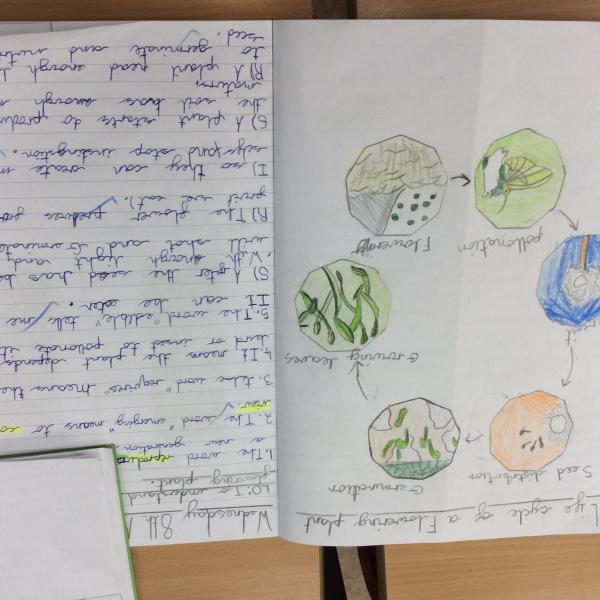 Life cycle of a Flowering plant
Seed distribution
Germination
Growing leaves
Flowering
pollonation
Wednesday 8th
LO: To understand
flowering plant.
1. The word reprodu
a new generation.
2. The word "emerging" means to co
view.
3. the word "requires" means the
4. It means the plant depends
bird or insect to pollonate it
5. The word "edible" tells me
It can be eaten.
S) After the seed has be
With enough light and
will shot and Germinate
R) The flower produces
fruit we eat).
I) so they can create m
selfs and stop
S) A plant starts to produ
the soil has enough
R) A plant need enough
to germinate and nutri
seed.